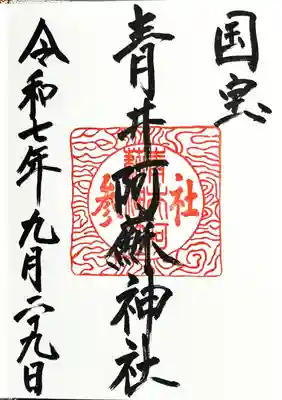 国宝
青井阿蘇神社
参社
令和七年九月二十九日